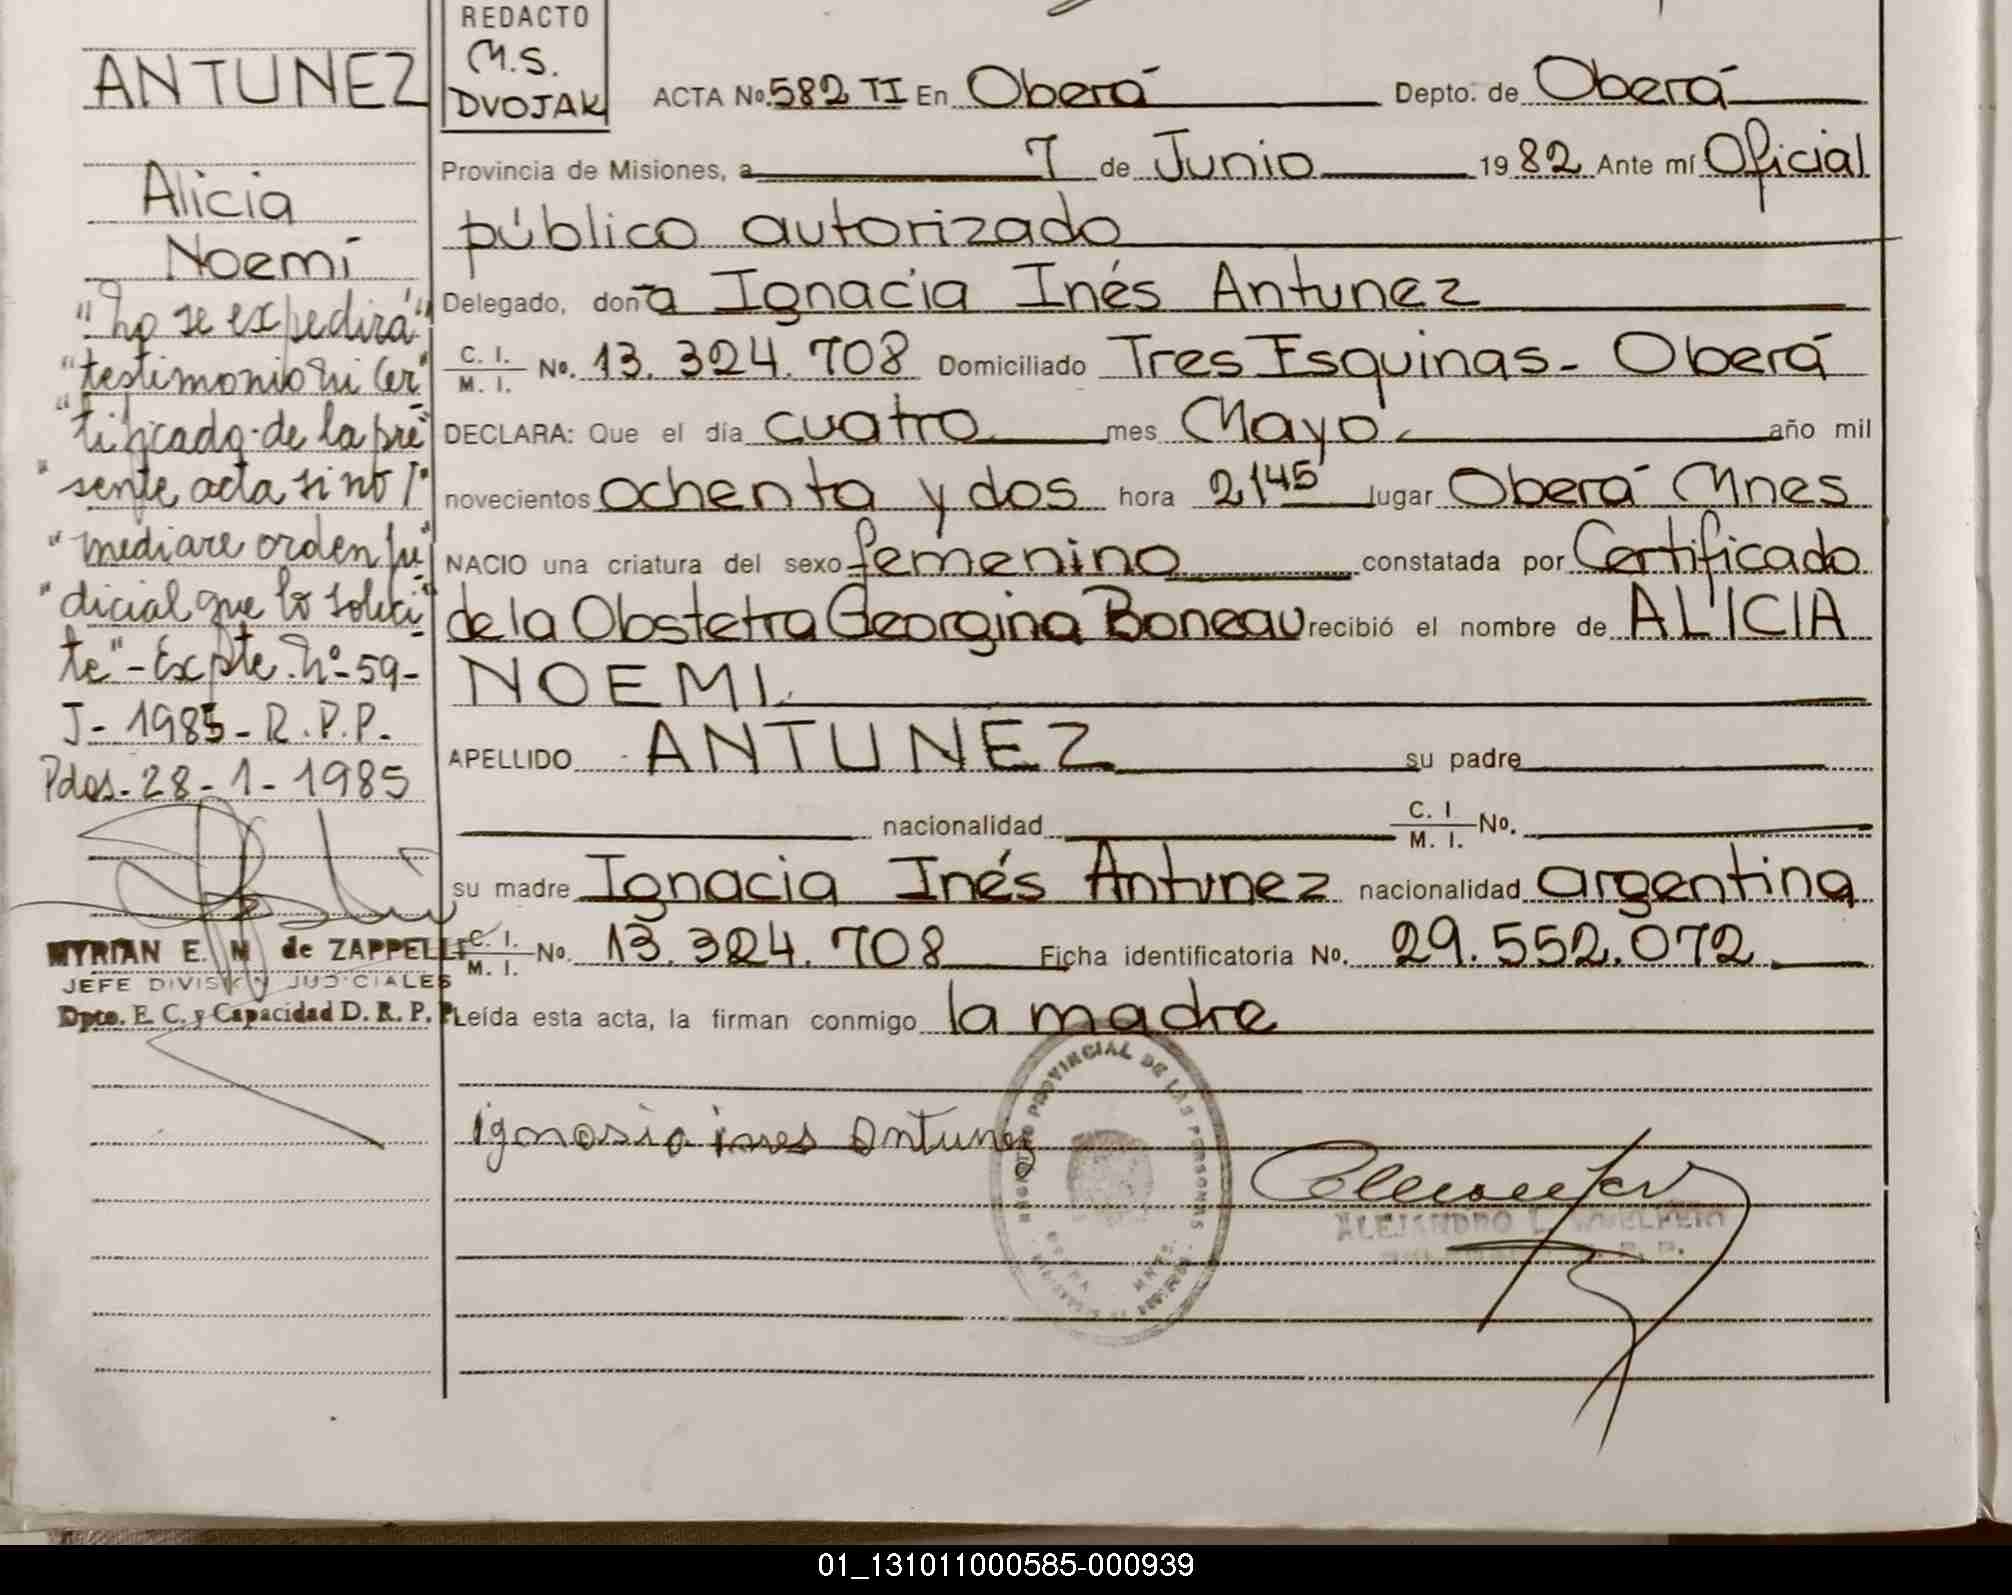 ANTUNEZ
Alicia
Noemí
"No se expedirá"
"testimonio ni cer"
"tificado de la pre"
"sente acta si no
"mediare orden ju"
"dicial que lo solici"
te" - Expte. Nº 59-
J- 1985- R.P.P.
Pdas. 28-1-1985
MYRIAN E. M de ZAPPELLI
JEFE DIVISION JUDICIALES
Dpto. E. C. y Capacidad D. R. P. P.
REDACTO
M.S.
DVOJAK
ACTA No. 582 TI En Oberá Depto. de Oberá
Provincia de Misiones, a 7 de Junio 1982 Ante mí Oficial
público autorizado
Delegado, don a Ignacia Inés Antunez
C. I. M. I. No. 13.324.708 Domiciliado Tres Esquinas - Oberá
DECLARA: Que el día cuatro mes Mayo año mil
novecientos ochenta y dos hora 21 45 lugar Oberá Mnes
NACIO una criatura del sexo femenino constatada por Certificado
de la Obstetra Georgina Boneau recibió el nombre de ALICIA
NOEMI
APELLIDO ANTUNEZ su padre
nacionalidad C. I M. I. No.
su madre Ignacia Inés Antunez nacionalidad argentina
C. I. M. I. No. 13.324.708 Ficha identificatoria No. 29.552.072
Leída esta acta, la firman conmigo la madre
ignasia ines antunez
REGISTRO PROVINCIAL DE LAS PERSONAS
ALEJANDRO L.
01_131011000585-000939